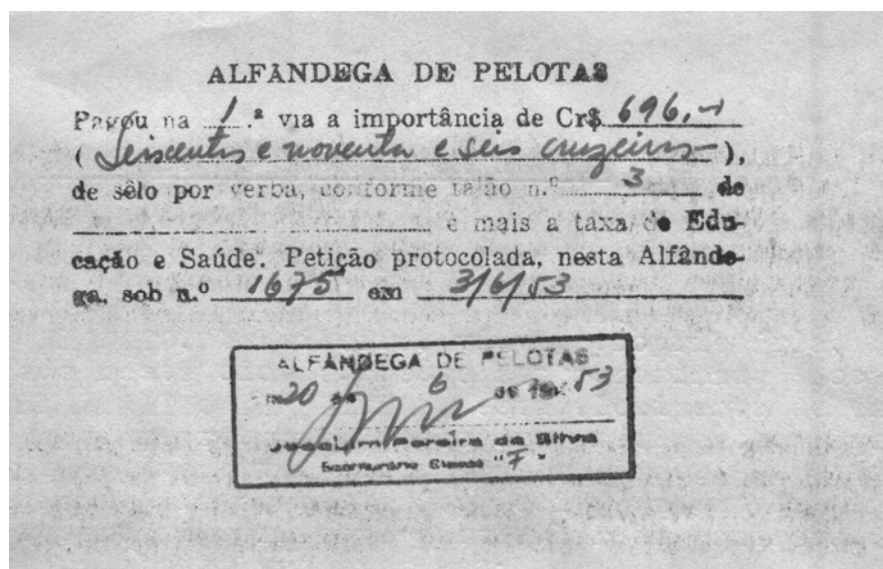 ALFÂNDEGA DE PELOTAS
Pagou na 1.ª via a importância de Cr$ 696,-
( Seiscentos e noventa e seis cruzeiros ),
de sêlo por verba, conforme talão n.º 3 de
e mais a taxa de Edu-
cação e Saúde. Petição protocolada, nesta Alfânde-
ga, sob n.º 1675 em 3/6/53
ALFÂNDEGA DE PELOTAS
Em 20 de 6 de 53
Joaquim Pereira da Silva
Escriturário Classe "F"